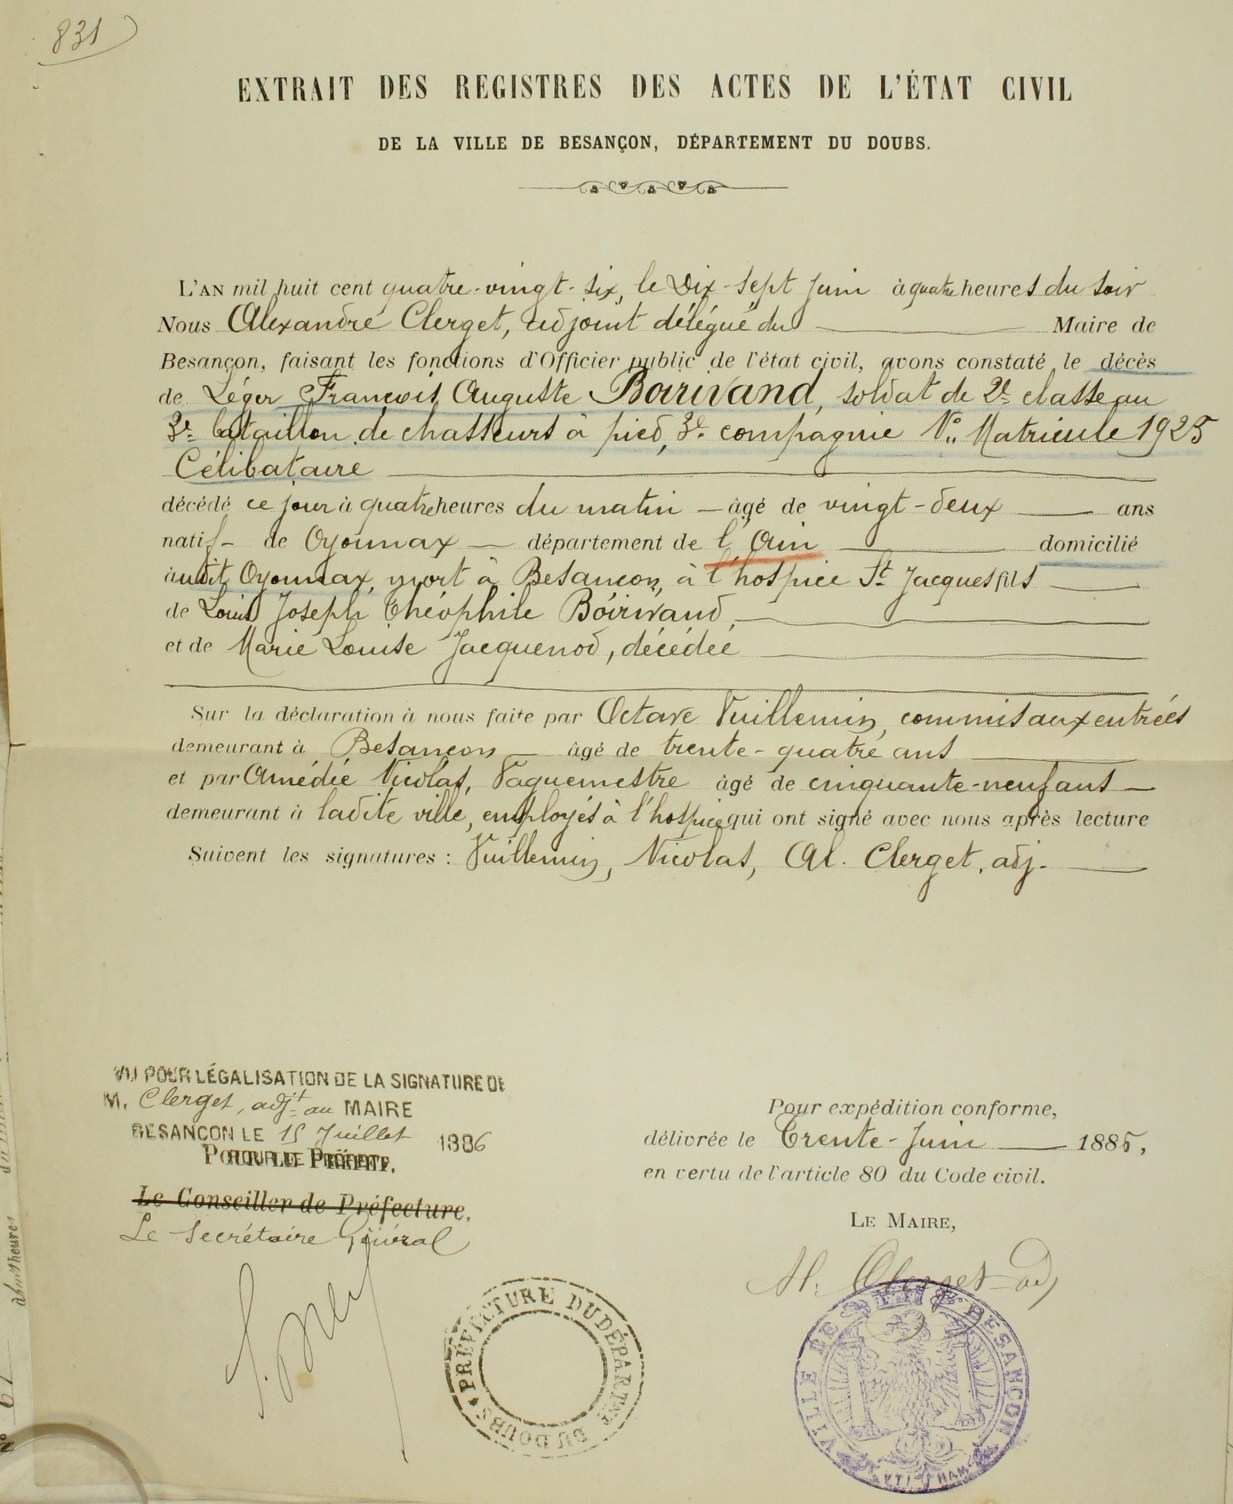 831
EXTRAIT DES REGISTRES DES ACTES DE L'ÉTAT CIVIL
DE LA VILLE DE BESANÇON, DÉPARTEMENT DU DOUBS.
L'AN mil huit cent quatre-vingt-six, le Dix-sept Juin à quatre heures du soir
Nous Alexandre Clerget, adjoint délégué du Maire de
Besançon, faisant les fonctions d'Officier public de l'état civil, avons constaté le décès
de Léger François Auguste Barivand, soldat de 2e classe au
3e bataillon de chasseurs à pied, 3e compagnie No Matricule 1925
Célibataire
décédé ce jour à quatre heures du matin – âgé de vingt-deux ans
natif de Oyonnax – département de l'Ain domicilié
audit Oyonnax, mort à Besançon, à l'hospice St Jacques fils
de Louis Joseph Théophile Barivand,
et de Marie Louise Jacquenod, décédée
Sur la déclaration à nous faite par Octave Vuillemin, commis aux entrées
demeurant à Besançon – âgé de trente-quatre ans
et par Amédée Nicolas, Vaguemestre âgé de cinquante-neuf ans
demeurant à ladite ville, employés à l'hospice qui ont signé avec nous après lecture
Suivent les signatures : Vuillemin, Nicolas, Al. Clerget, adj.
VU POUR LÉGALISATION DE LA SIGNATURE DE
M. Clerget, adjt au MAIRE
BESANCON LE 15 Juillet 1886
POUR LE PRÉFET,
Le Conseiller de Préfecture,
Le Secrétaire Général
Pour expédition conforme,
délivrée le Trente-Juin 1886,
en vertu de l'article 80 du Code civil.
LE MAIRE,
Al. Clerget adj
PRÉFECTURE DU DÉPARTEMT DU DOUBS
VILLE DE BESANÇON
à huit heures
No 67